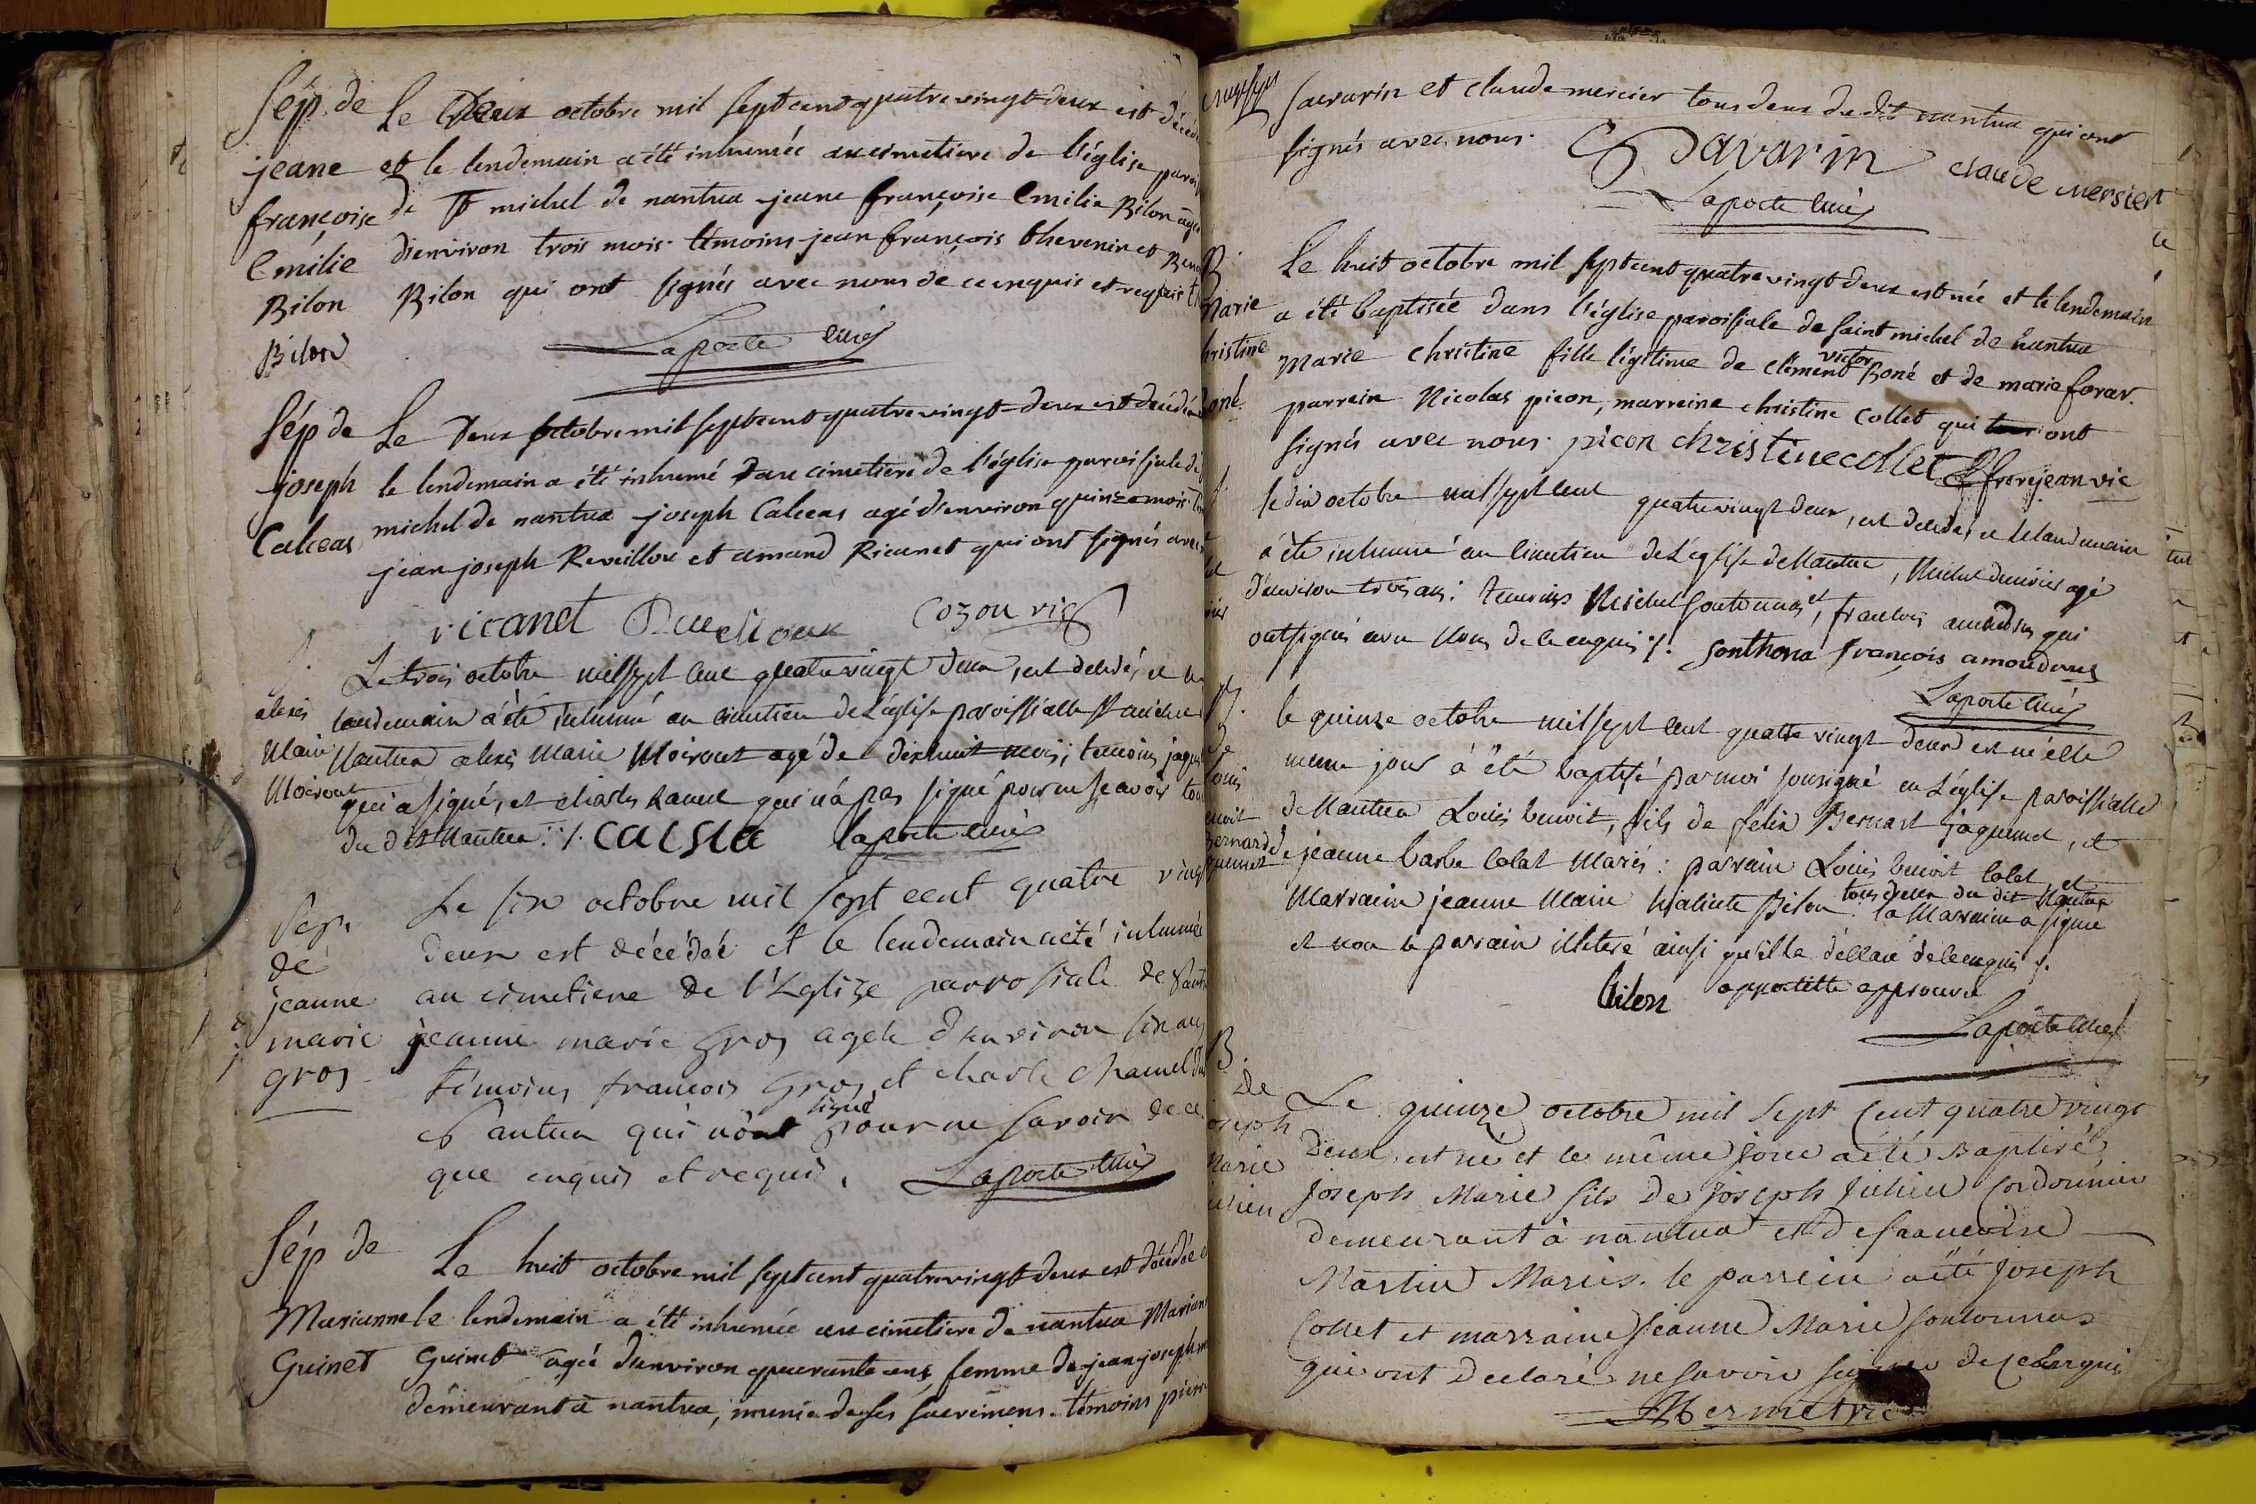 Sép de
jeane
françoise
Emilie
Bilon
Bilon
Le Deux octobre mil sept cent quatre vingt deux est décédé
et le lendemain a été inhumée au cimetiere de l'église parois
de St michel de nantua jeane françoise Emilie Bilon agée
d'environ trois mois. témoins jean françois thevenin et Ben
Bilon qui ont signés avec nous de ce enquis et requis
Laporte curé
Sép de
joseph
Calceas
Le deux octobre mil sept cent quatre vingt deux est décédé
le lendemain a été inhumé au cimetiere de l'église paroissiale de
michel de nantua joseph Calceas agé d'environ quinze mois
jean joseph Reveilloux et amand Ricanet qui ont signés avec
ricanet Reveilloux Cozon vic
S.
alexis
Marie
Moiroux
Le trois octobre mil sept cent quatre vingt deux, est décédé, et le
landemain a été inhumé au cimetiere de L'église paroissialle St michel
Nantua alexis Marie Moiroux agé de dixhuit mois; temoins jaque
qui a signé, et charles qui n'a pas signé pour ne sçavoir
du dit Nantua ./. laporte curé
Sep.
de
jeanne
marie
gros
Le six octobre mil sept cent quatre ving
deux est décédée et le lendemain a été inhumée
au cimetiere de l'Eglize parrosiale de Nant
jeanne marie Gros agée d'environ six ans
témoins francois Gros et charle chamel du
Nantua qui n'ont signé pour ne savoir de ce
que enquis et requis. Laporte curé
Sép de
Marianne
Guinet
Le huit octobre mil sept cent quatre vingt deux est décédée
le lendemain a été inhumée au cimetiere de nantua Marian
Guinet agée d'environ quarante ans femme de jean joseph
demeurant à nantua, munie de ses sacremens. témoins pierre
Savarin et claude mercier tous deux du dit nantua qui ont
signés avec nous.
Savarin claude mersier
Laporte curé
B.
Marie
hristine
oné.
Le huit octobre mil sept cent quatre vingt deux est née et le lendemain
a été baptisée dans l'église paroissiale de saint michel de nantua
Marie christine fille légitime de clément victor Boné et de marie foray.
parrein Nicolas picon, marreine christine Collet qui ont
signés avec nous. picon christine collet frerejean vic
le dix octobre mil sept cent quatre vingt deux, est décédé, et le landemain
a été inhumé au cimetiere de L'église de Nantua, Michel agé
d'environ trois ans: temoins Michel Sontonas et, francois amoudrus qui
ont signés avec Nous de ce enquis ./. Sonthona françois amoudrus
Laporte curé
B.
de
Louis
enoit
Bernard
le quinze octobre mil sept cent quatre vingt deux est né et le
meme jour a été baptisé par moi soussigné en L'église paroissialle
de Nantua Louis benoit, fils de felix Bernard jaquemet, et
de jeanne barbe Colet Mariés: parrain Louis benoit Colet, et
Marraine jeanne Marie hialinte Bilon tous deux du dit Nantua la Marraine a signé
et non le parrain illiteré ainsi qu'il l'a déclaré de ce enquis ./.
bilon appostille approuvé
Laporte curé
B.
De
oseph
Marie
ulien
Le quinze octobre mil sept cent quatre vingt
deux est né et le même jour a été Baptisé
Joseph Marie fils de Joseph Julien Cordonnier
demeurant à nantua et de francoise
Martin Mariés. le parrein a été Joseph
Collet et marraine Jeanne Marie Sontonnas
qui ont declaré ne savoir signer de ce enquis
Mermet vic